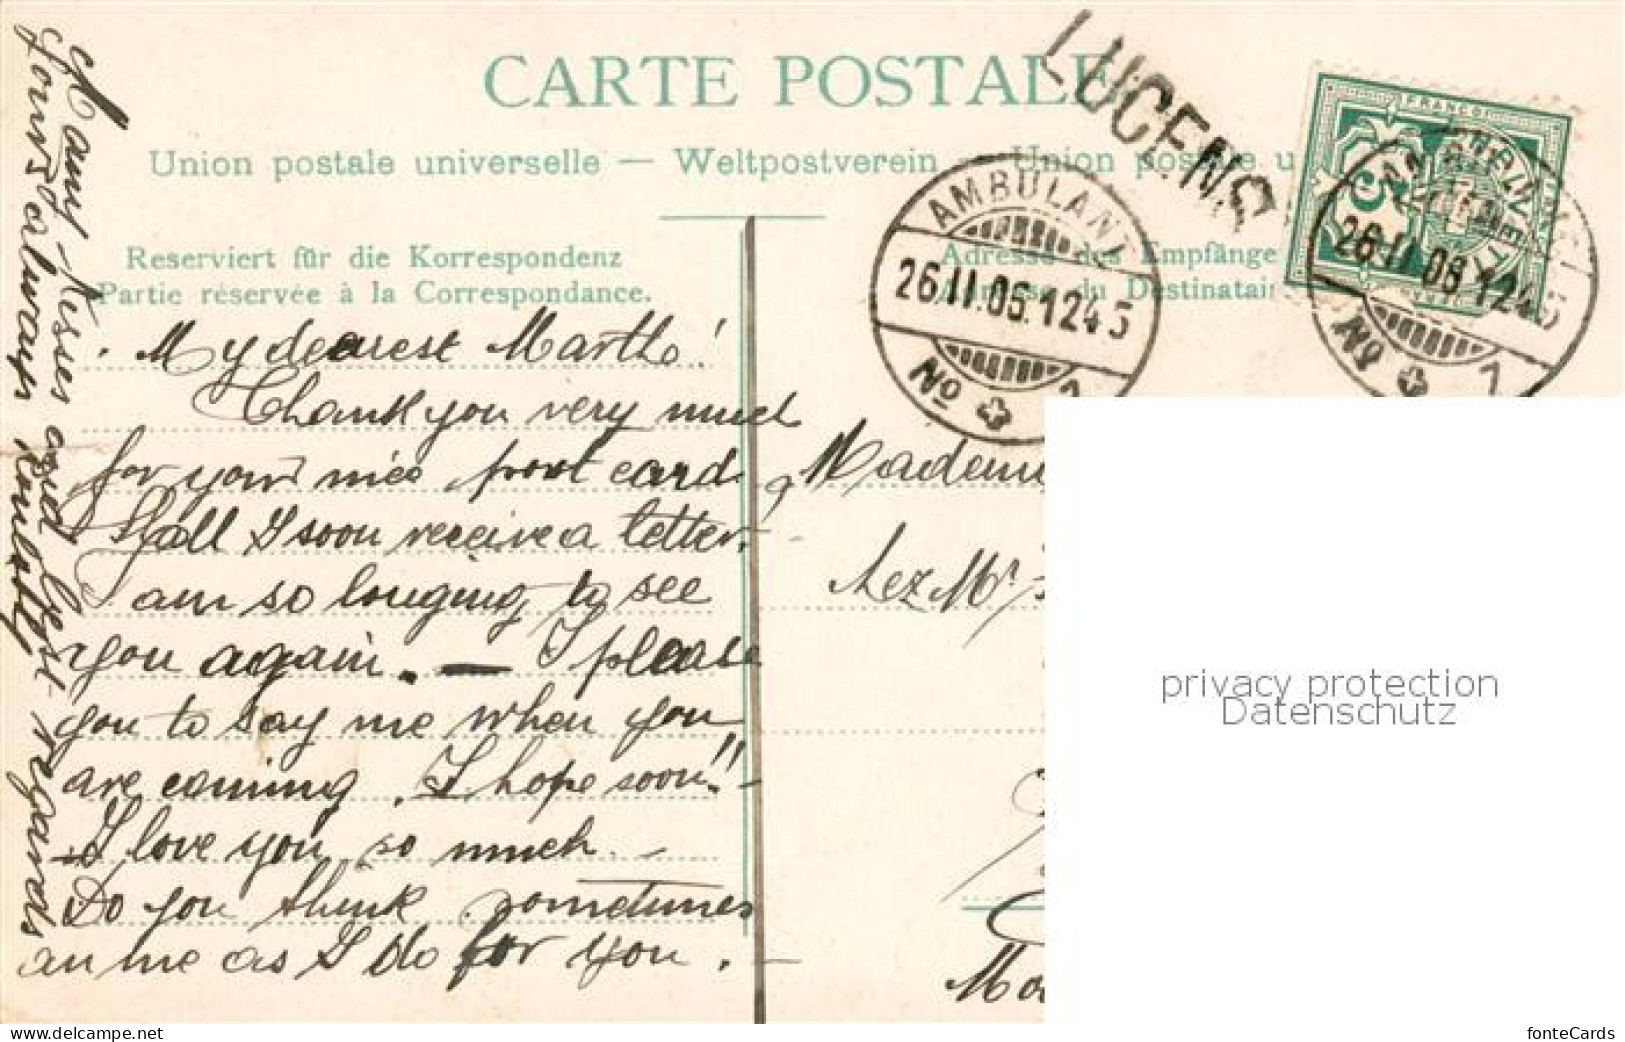 CARTE POSTALE
LUCENS
Union postale universelle — Weltpostverein — Union postale u
Reserviert für die Korrespondenz
Partie réservée à la Correspondance.
Adresse des Empfänge
du Destinatair
FRANCO
5
AMBULANT
26.II.06.1245
No 1
AMBULANT
26.II.06.1245
No 1
My dearest Martha!
Thank you very much
for your nice post card,
Shall I soon receive a letter.
I am so longing to see
you again. — I please
you to say me when you
are coming. I hope soon!! –
– I love you so much. –
Do you think sometimes
an me as I do for you. –
Many kisses and best regards
yours always
Mademoi
chez Mr
privacy protection
Datenschutz
www.delcampe.net
fonteCards